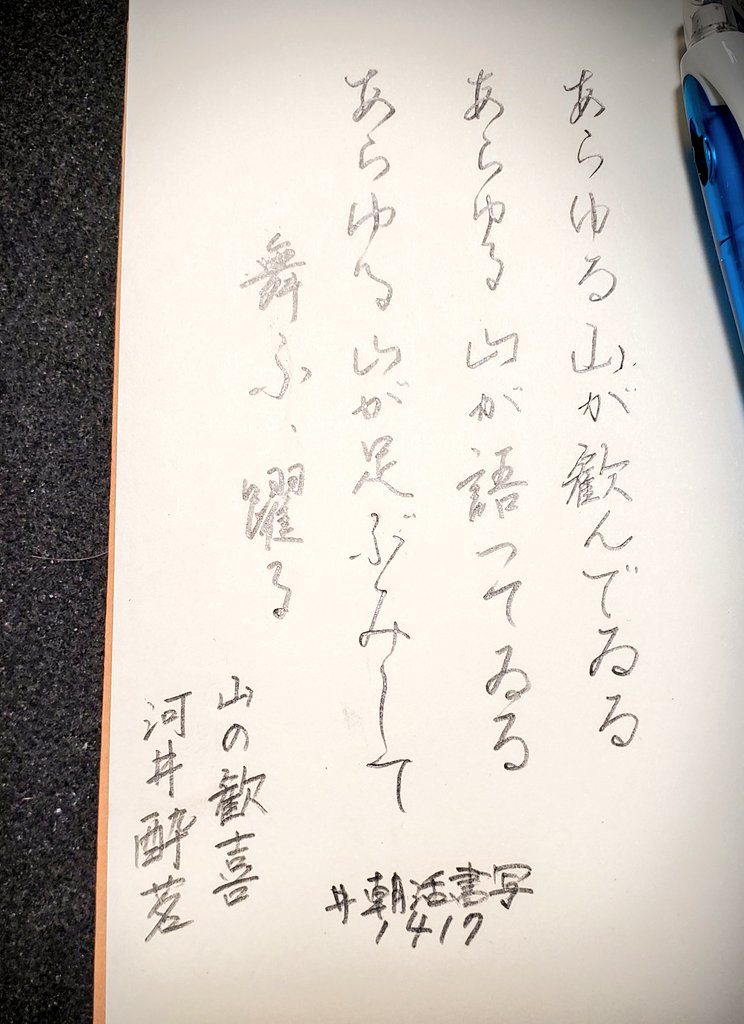 あらゆる山が歓んでゐる
あらゆる山が語つてゐる
あらゆる山が足ぶみして
舞ふ、躍る
山の歓喜
河井酔茗
#朝活書写
1417